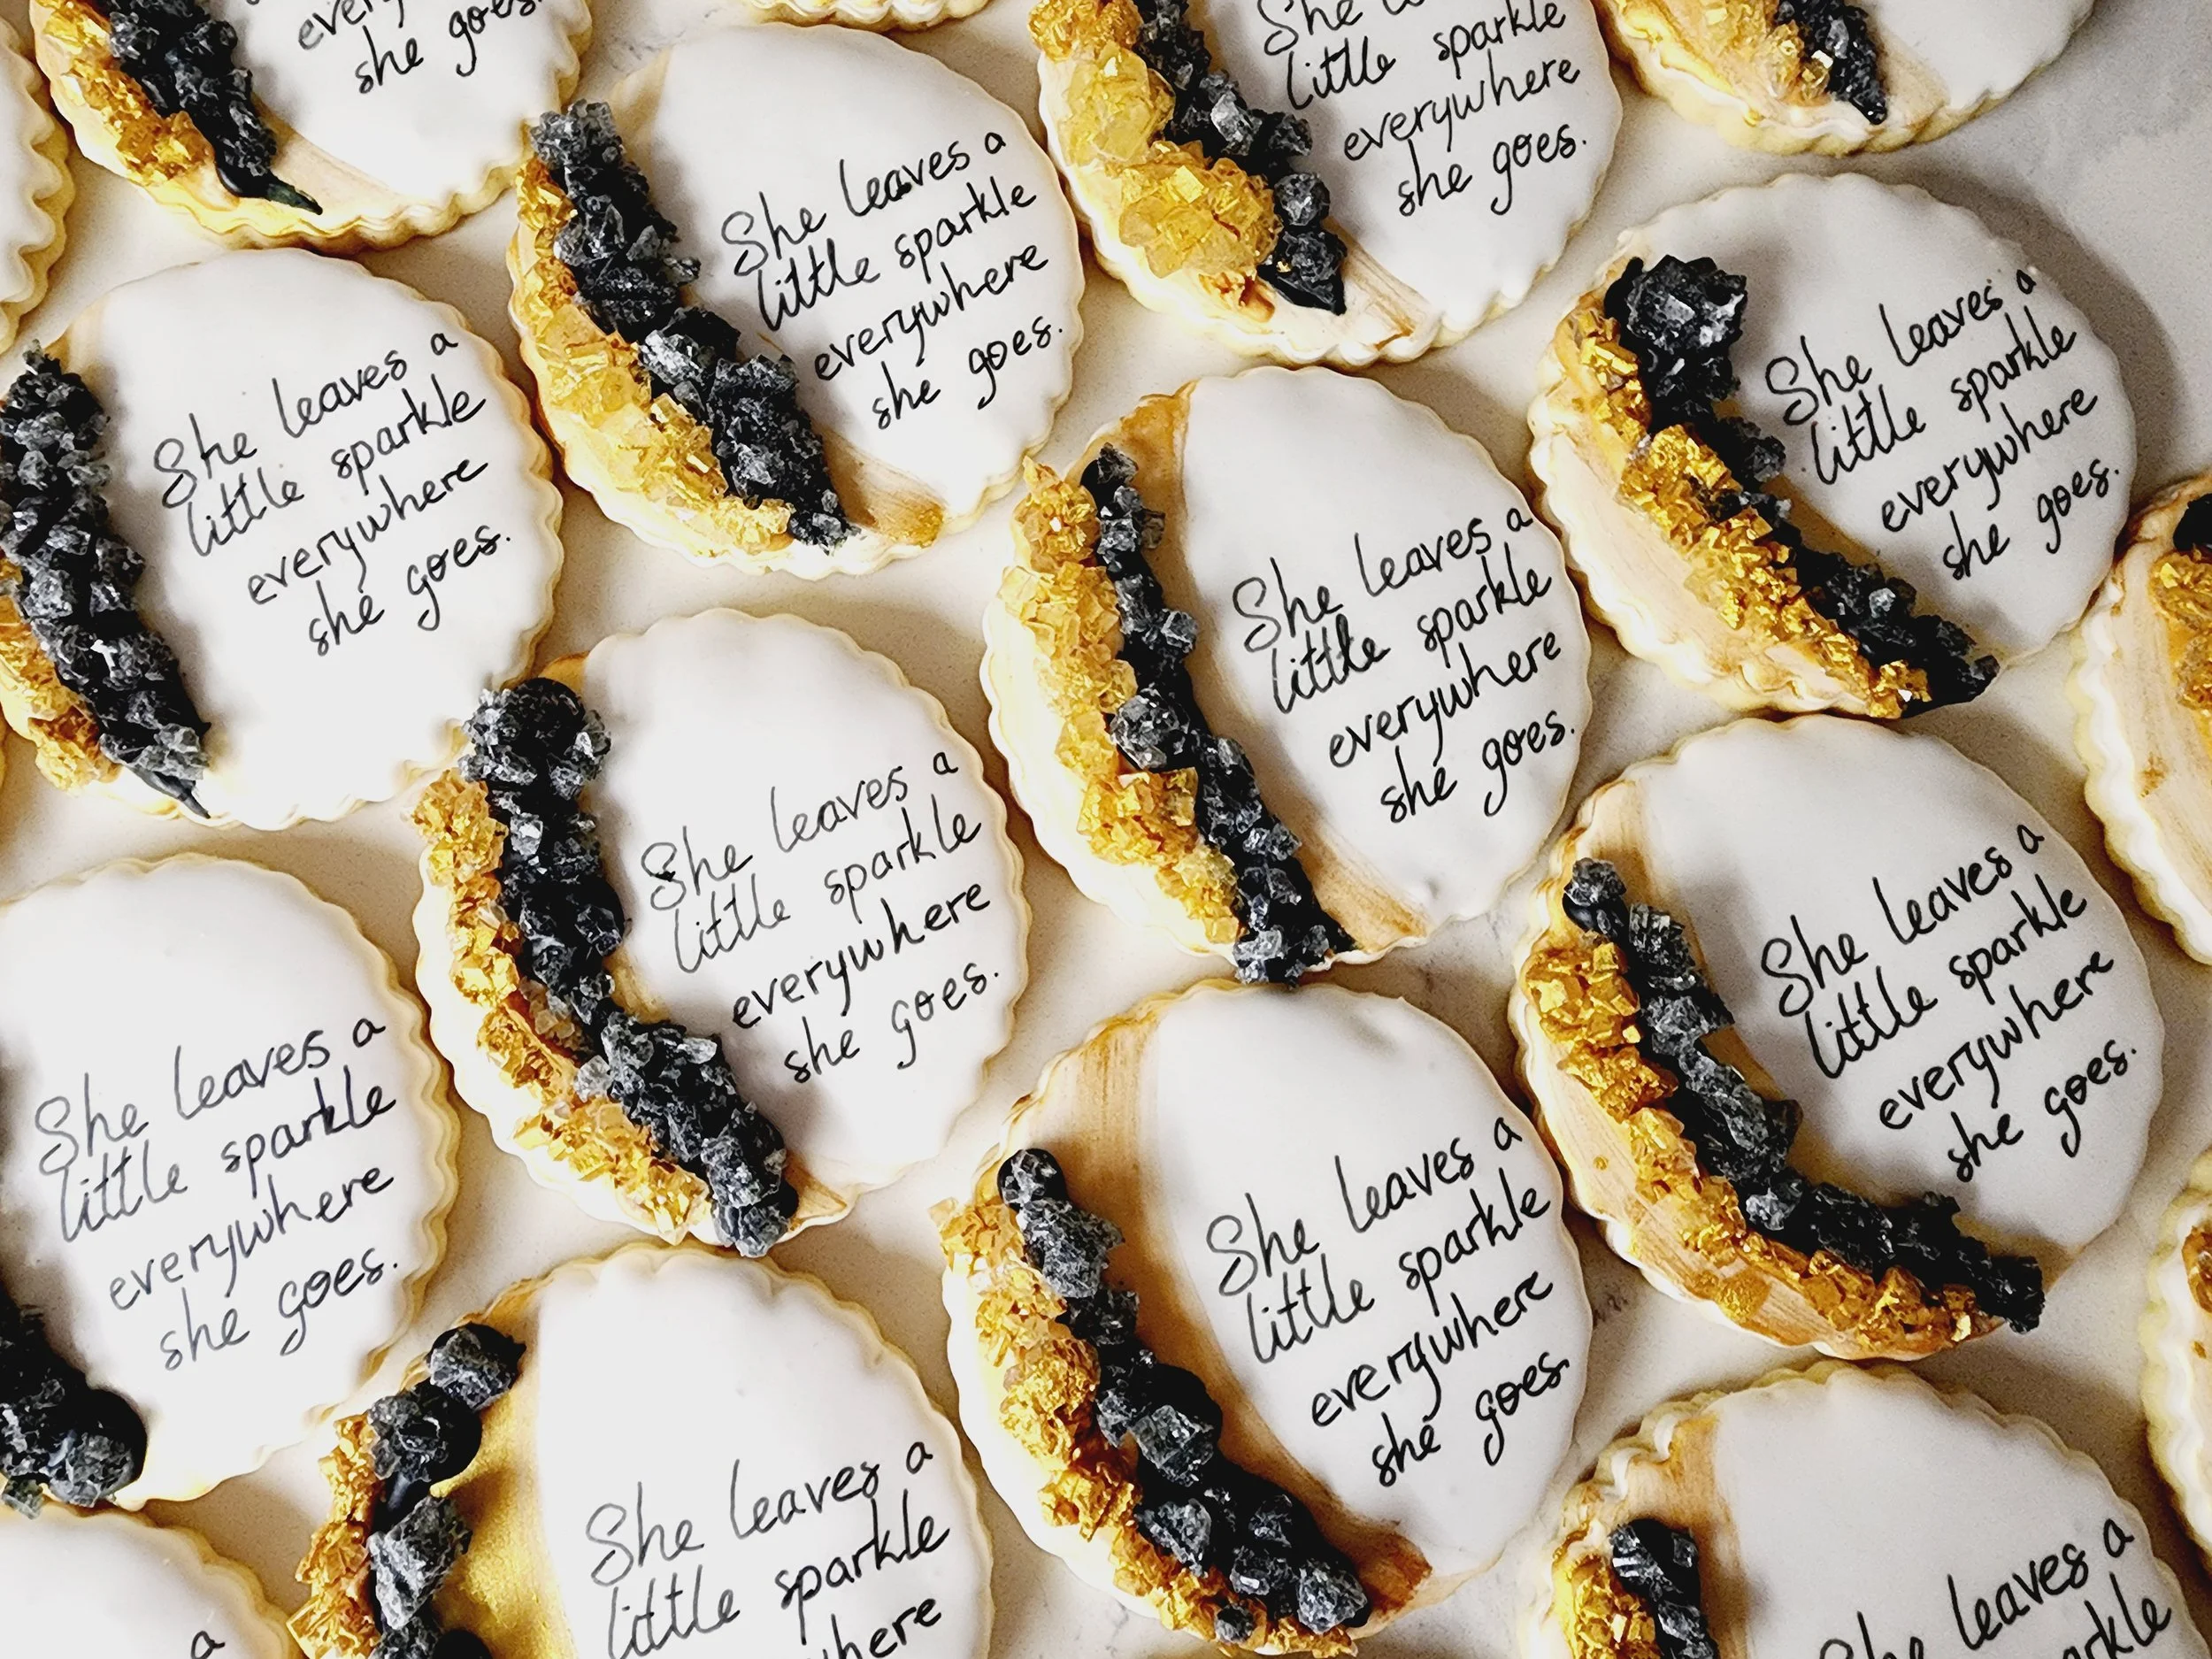 every
she goes.
She
little sparkle
everywhere
she goes.
She leaves a
little sparkle
everywhere
she goes.
She leaves a
little sparkle
everywhere
she goes.
She leaves a
little sparkle
everywhere
she goes.
She leaves a
little sparkle
everywhere
she goes.
She leaves a
little sparkle
everywhere
she goes.
She leaves a
little sparkle
everywhere
she goes.
She leaves a
little sparkle
everywhere
she goes.
She leaves a
little sparkle
everywhere
she goes.
She leaves a
little sparkle
here
She leaves a
arkle
a